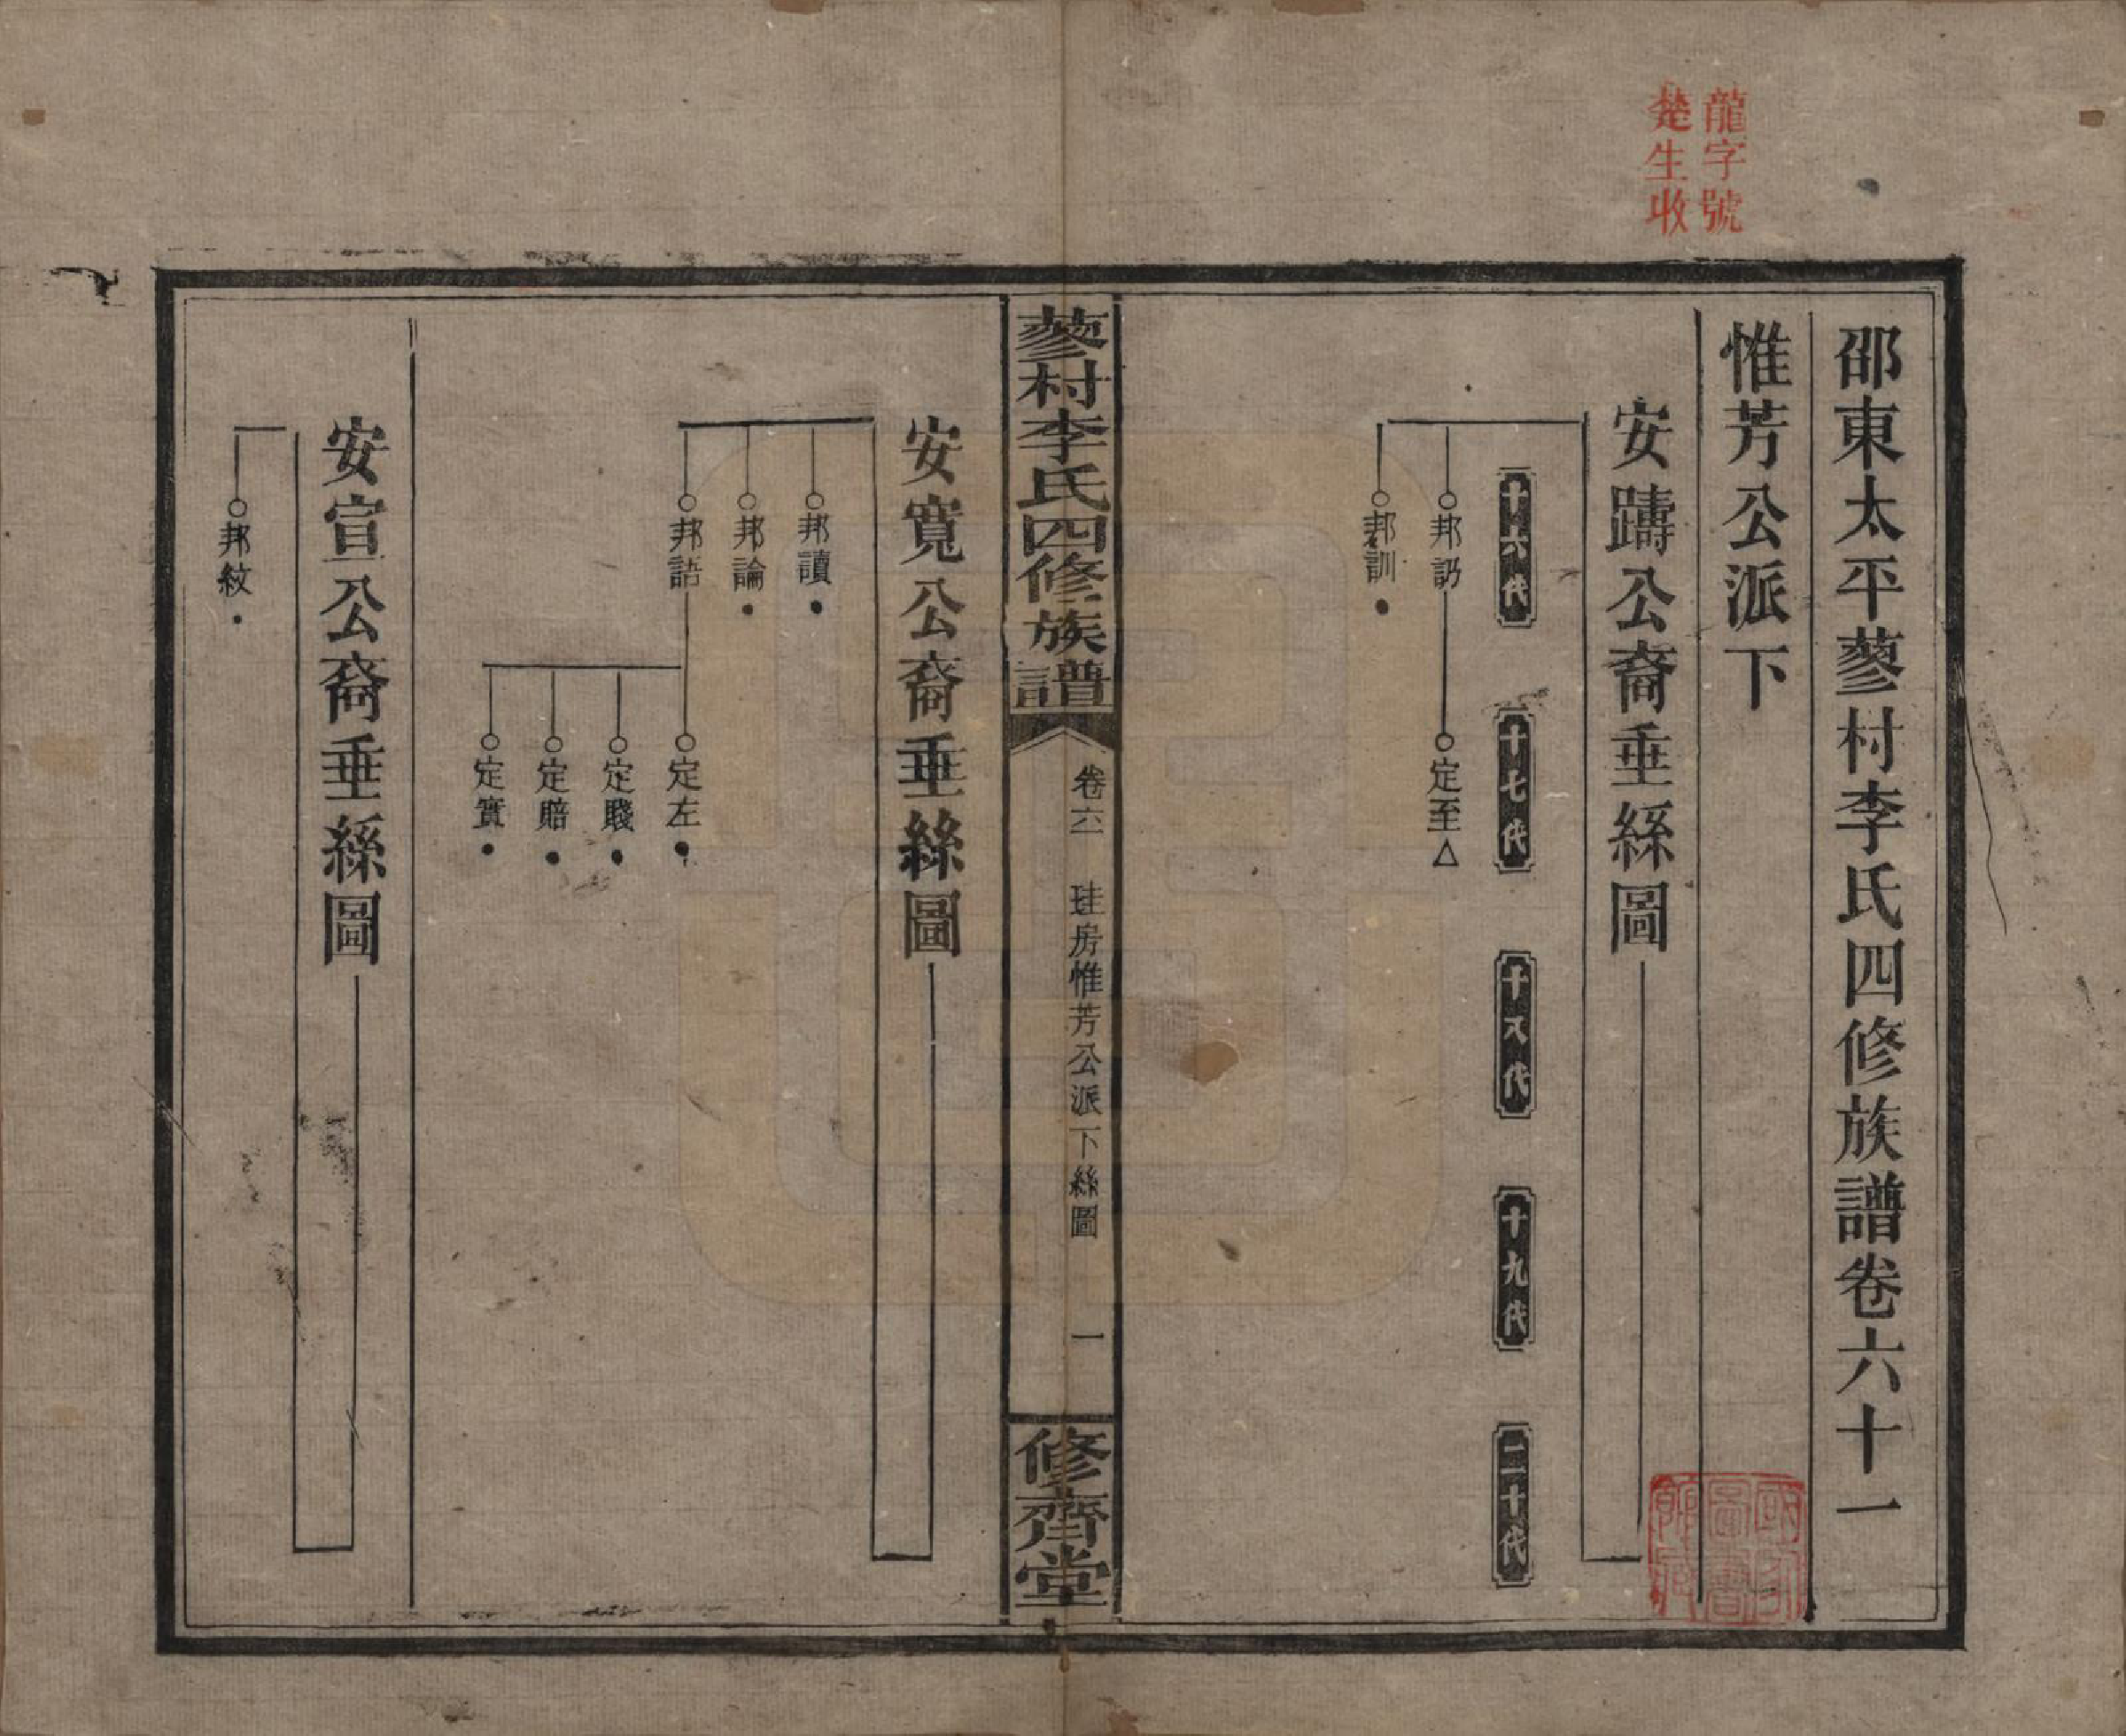 龍字號
楚生收
邵東太平蓼村李氏四修族譜卷六十一
惟芳公派下
安躊公裔垂絲圖
十六代
十七代
十八代
十九代
二十代
邦訒
定至
邦訓
蓼村李氏四修族譜
卷六一
珪房惟芳公派下絲圖
一
修齊堂
安寬公裔垂絲圖
邦讀
邦論
邦語
定左
定賤
定賠
定實
安宣公裔垂絲圖
邦紋